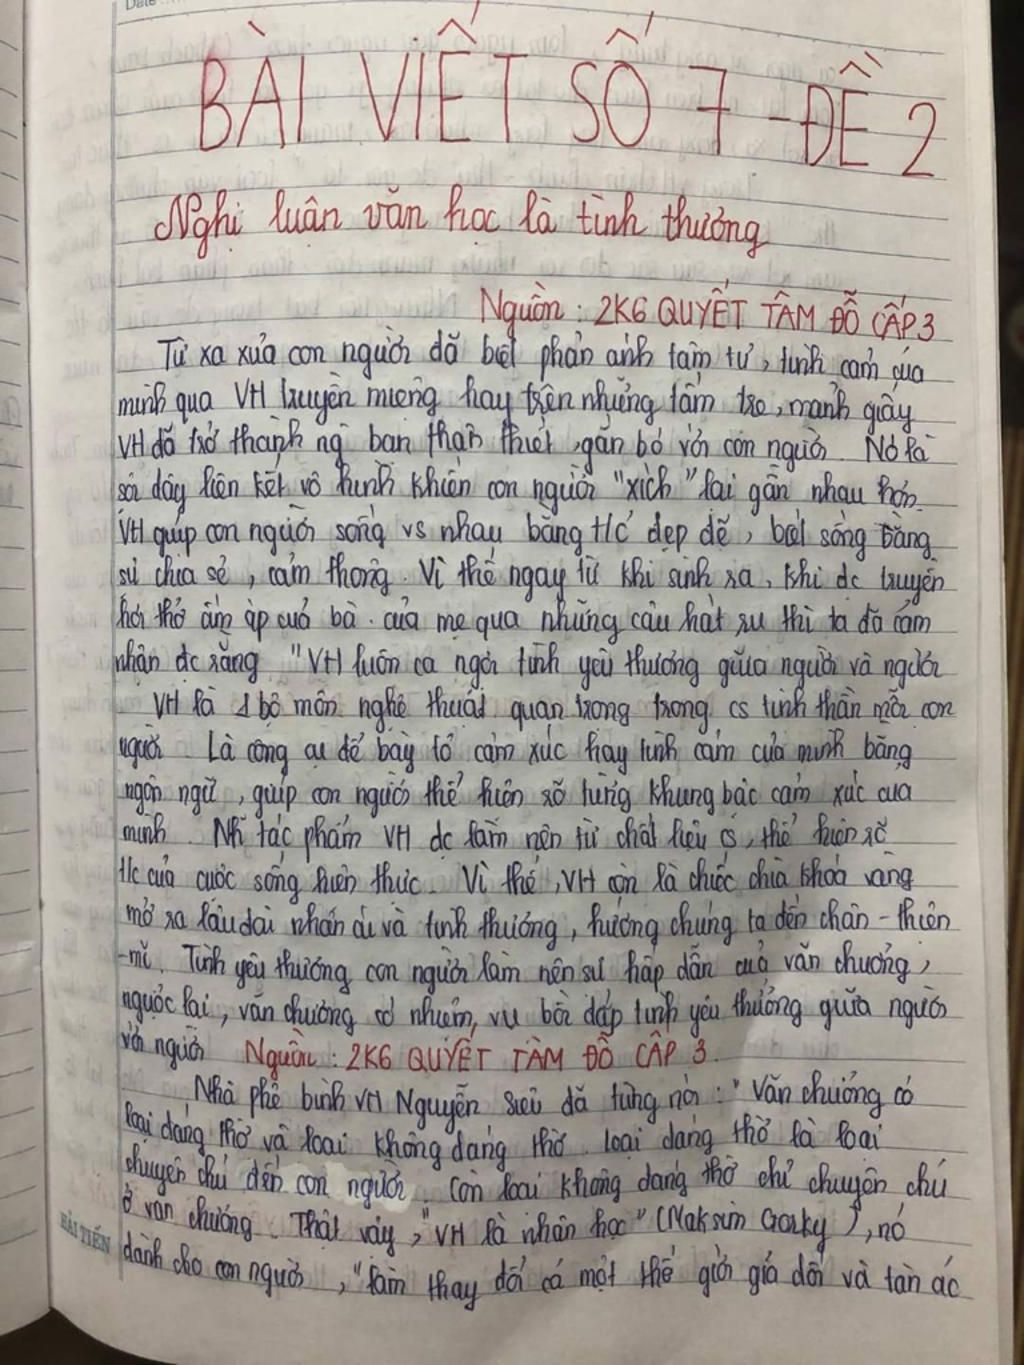 Date
BÀI VIẾT SỐ 7 - ĐỀ 2
Nghị luận văn học là tình thương
Nguồn : 2K6 QUYẾT TÂM ĐỖ CẤP 3
Từ xa xưa con người đã biết phản ánh tâm tư, tình cảm của
mình qua VH truyền miệng hay trên những tấm tre, mảnh giấy
VH đã trở thành ng bạn thân thiết, gắn bó với con người. Nó là
sợi dây liên kết vô hình khiến con người "xích" lại gần nhau hơn.
VH giúp con người sống vs nhau bằng t/c đẹp đẽ, biết sống bằng
sự chia sẻ, cảm thông. Vì thế ngay từ khi sinh ra, khi đc truyền
hơi thở ấm áp của bà. của mẹ qua những câu hát ru thì ta đã cảm
nhận đc rằng "VH luôn ca ngợi tình yêu thương giữa người và người
VH là 1 bộ môn nghệ thuật quan trọng trong cs tinh thần mỗi con
người. Là công cụ để bày tỏ cảm xúc hay tình cảm của mình bằng
ngôn ngữ, giúp con người thể hiện rõ từng khung bậc cảm xúc của
mình. Nh tác phẩm VH đc làm nên từ chất liệu cs, thể hiện rõ
t/c của cuộc sống hiện thực. Vì thế, VH còn là chiếc chìa khóa vàng
mở ra lâu đài nhân ái và tình thương, hướng chúng ta đến chân - thiện
- mĩ. Tình yêu thương con người làm nên sự hấp dẫn của văn chương,
ngược lại, văn chương có nhiệm vụ bồi đắp tình yêu thương giữa người
với người Nguồn : 2K6 QUYẾT TÂM ĐỖ CẤP 3.
Nhà phê bình VH Nguyễn Siêu đã từng nói : "Văn chương có
loại đáng thờ và loại không đáng thờ. loại đáng thờ là loại
chuyên chú đến con người. Còn loại không đáng thờ chỉ chuyên chú
ở văn chương. Thật vậy, "VH là nhân học" (Maksim Gorky), nó
dành cho con người, "làm thay đổi cả một thế giới giả dối và tàn ác
HẢI TIẾN